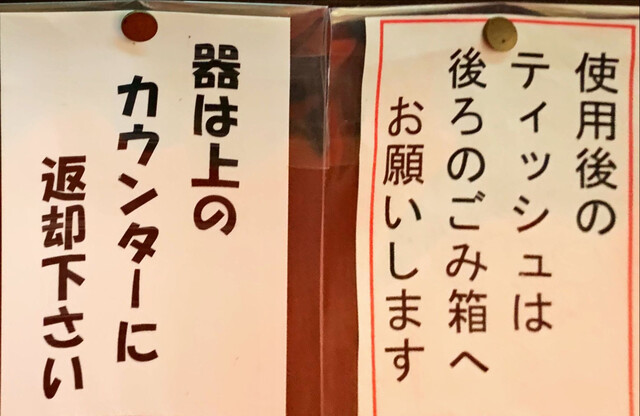 使用後の
ティッシュは
後ろのごみ箱へ
お願いします
器は上の
カウンターに
返却下さい